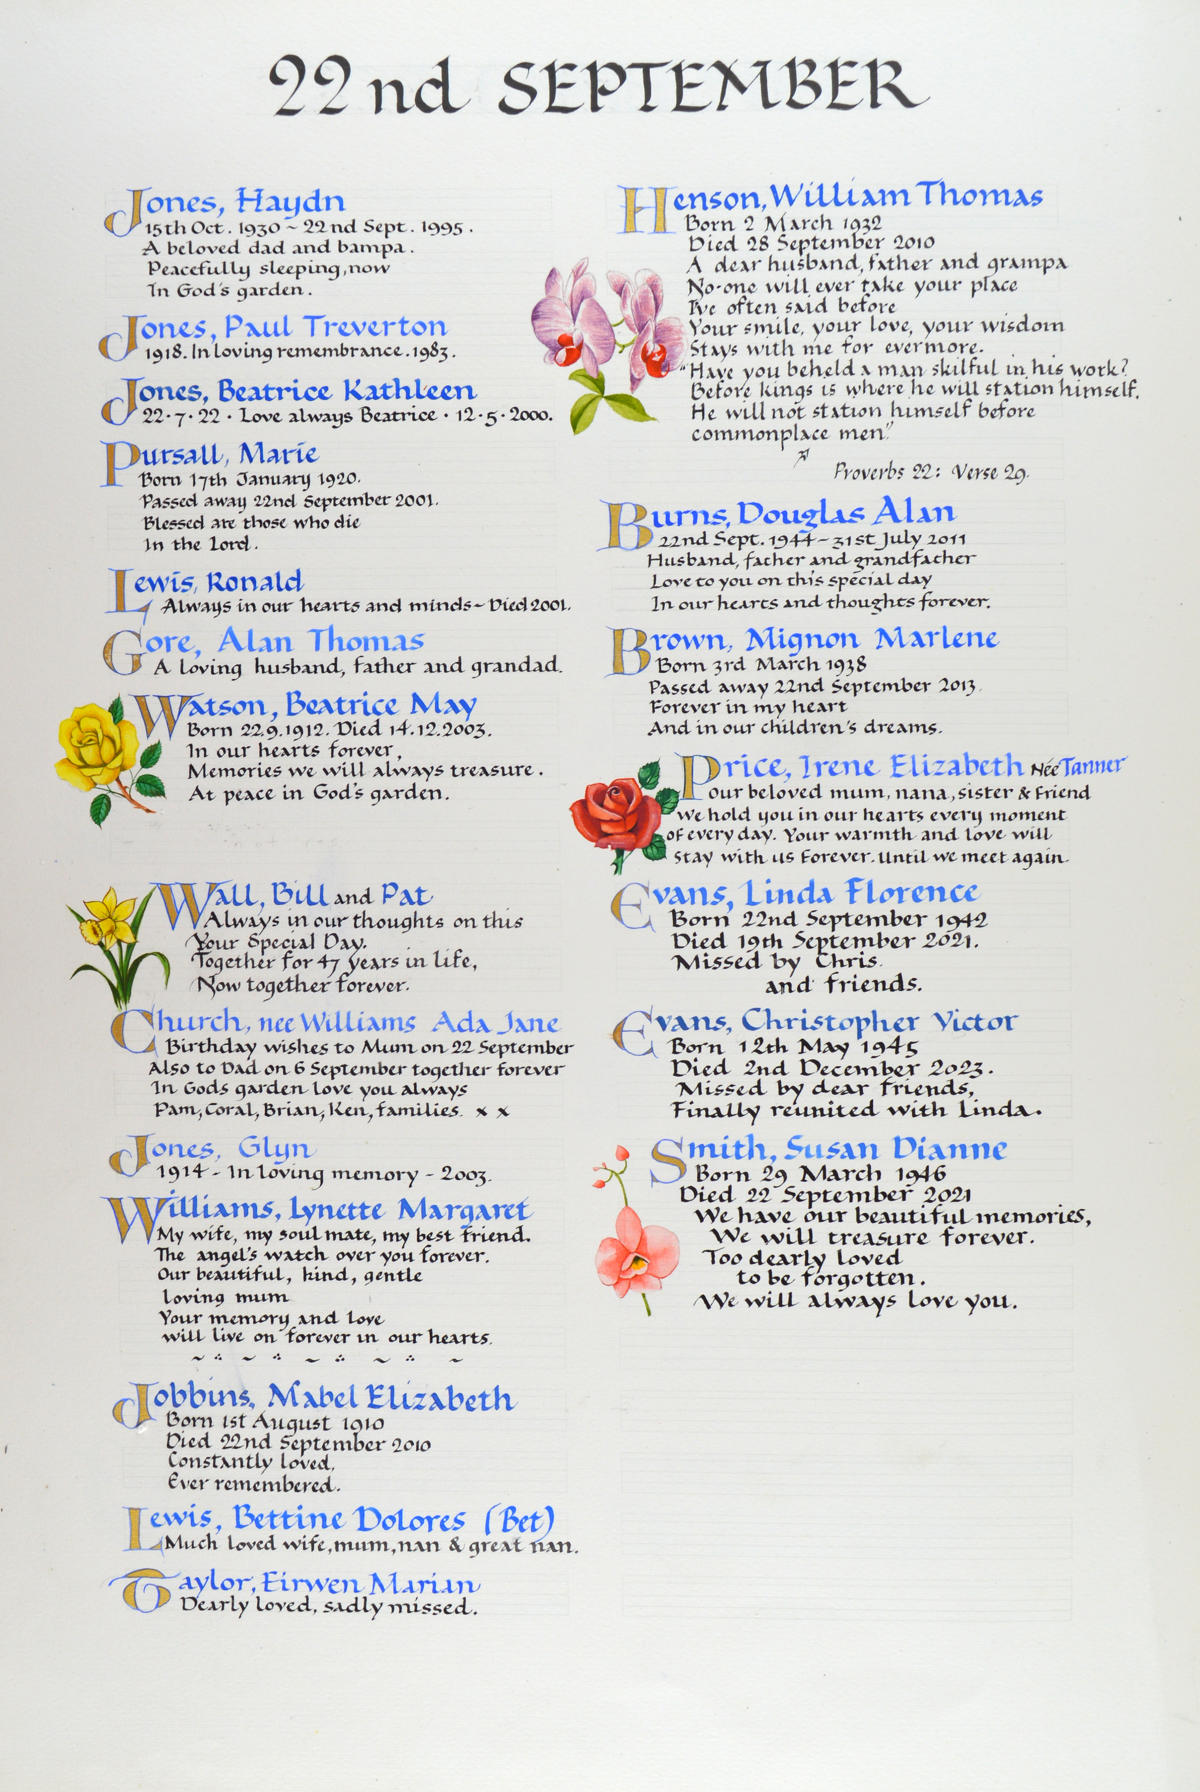 22nd SEPTEMBER
Jones, Haydn
15th Oct. 1930 ~ 22nd Sept. 1995.
A beloved dad and bampa.
Peacefully sleeping, now
In God's garden.
Jones, Paul Treverton
1918. In loving remembrance. 1983.
Jones, Beatrice Kathleen
22·7·22 · Love always Beatrice · 12·5·2000.
Pursall, Marie
Born 17th January 1920.
Passed away 22nd September 2001.
Blessed are those who die
In the Lord.
Lewis, Ronald
Always in our hearts and minds ~ Died 2001.
Gore, Alan Thomas
A loving husband, father and grandad.
Watson, Beatrice May
Born 22.9.1912. Died 14.12.2003.
In our hearts forever,
Memories we will always treasure.
At peace in God's garden.
Wall, Bill and Pat
Always in our thoughts on this
Your Special Day.
Together for 47 years in life,
Now together forever.
Church, nee Williams Ada Jane
Birthday wishes to Mum on 22 September
Also to Dad on 6 September together forever
In Gods garden love you always
Pam, Coral, Brian, Ken, families. x x
Jones, Glyn
1914 - In loving memory - 2003.
Williams, Lynette Margaret
My wife, my soul mate, my best friend.
The angel's watch over you forever.
Our beautiful, kind, gentle
loving mum
Your memory and love
will live on forever in our hearts.
Jobbins, Mabel Elizabeth
Born 1st August 1910
Died 22nd September 2010
Constantly loved,
Ever remembered.
Lewis, Bettine Dolores (Bet)
Much loved wife, mum, nan & great nan.
Taylor, Eirwen Marian
Dearly loved, sadly missed.
Henson, William Thomas
Born 2 March 1932
Died 28 September 2010
A dear husband, father and grampa
No-one will ever take your place
I've often said before
Your smile, your love, your wisdom
Stays with me for evermore.
"Have you beheld a man skilful in his work?
Before kings is where he will station himself.
He will not station himself before
commonplace men"
Proverbs 22: Verse 29.
Burns, Douglas Alan
22nd Sept. 1944 ~ 31st July 2011
Husband, father and grandfather
Love to you on this special day
In our hearts and thoughts forever.
Brown, Mignon Marlene
Born 3rd March 1938
Passed away 22nd September 2013.
Forever in my heart
And in our children's dreams.
Price, Irene Elizabeth Née Tanner
Our beloved mum, nana, sister & friend
We hold you in our hearts every moment
of every day. Your warmth and love will
stay with us forever. Until we meet again.
Evans, Linda Florence
Born 22nd September 1942
Died 19th September 2021.
Missed by Chris.
and friends.
Evans, Christopher Victor
Born 12th May 1945
Died 2nd December 2023.
Missed by dear friends,
Finally reunited with Linda.
Smith, Susan Dianne
Born 29 March 1946
Died 22 September 2021
We have our beautiful memories,
We will treasure forever.
Too dearly loved
to be forgotten.
We will always love you.